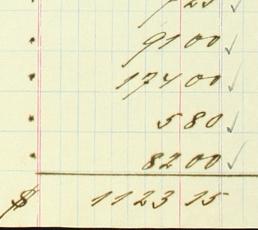 25 ✓
91 00 ✓
174 00 ✓
5 80 ✓
82 00 ✓
$ 1123 15